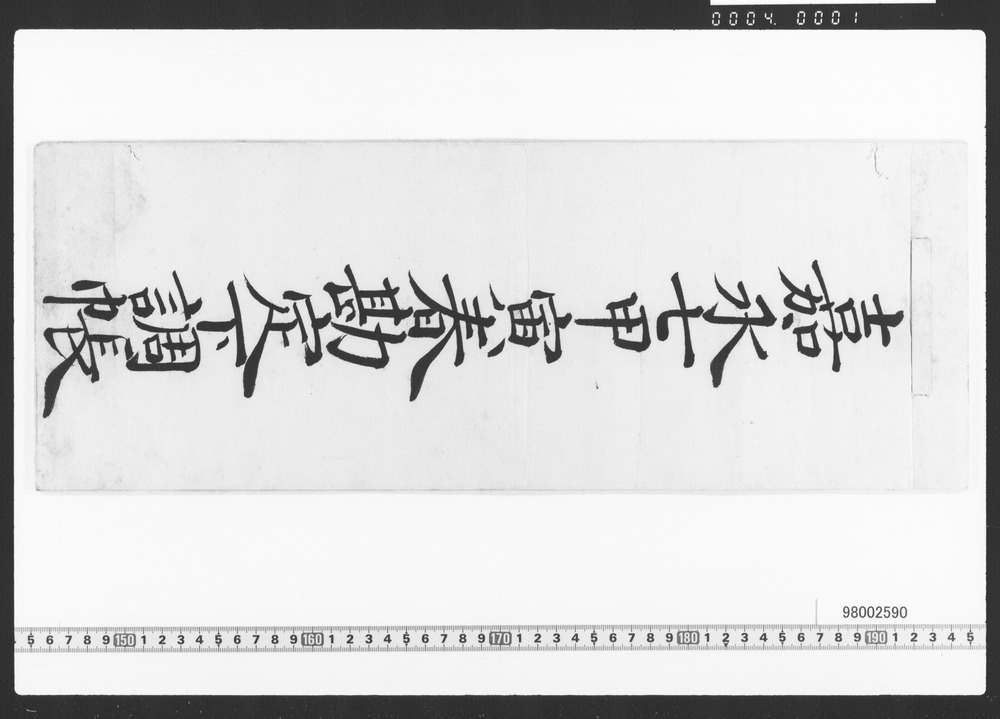 0004. 0001
嘉永七甲寅春勘定下調帳
98002590
5 6 7 8 9 150 1 2 3 4 5 6 7 8 9 160 1 2 3 4 5 6 7 8 9 170 1 2 3 4 5 6 7 8 9 180 1 2 3 4 5 6 7 8 9 190 1 2 3 4 5